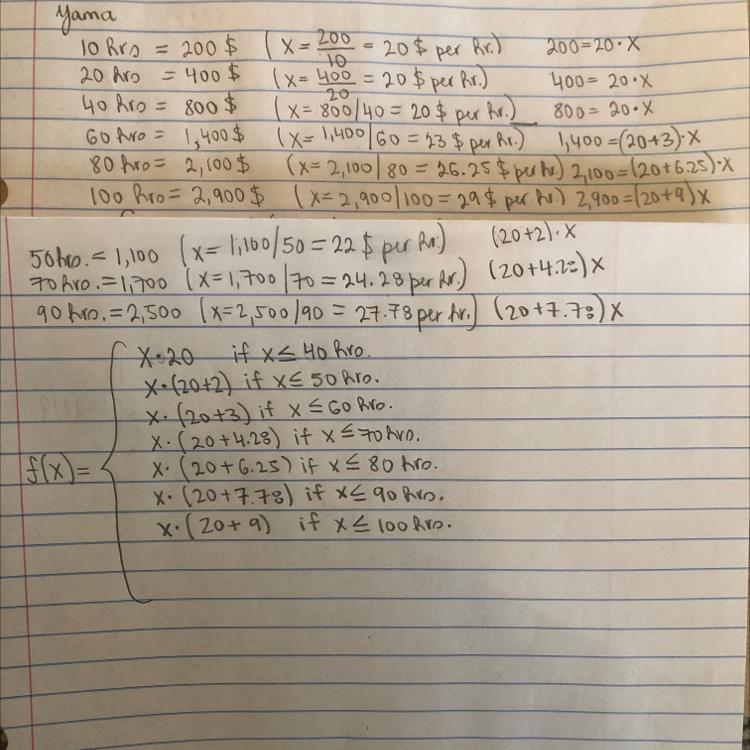 Yama
10 hrs = 200 $ (x = 200/10 = 20 $ per hr.) 200 = 20 · x
20 hrs = 400 $ (x = 400/20 = 20 $ per hr.) 400 = 20 · x
40 hrs = 800 $ (x = 800/40 = 20 $ per hr.) 800 = 20 · x
60 hrs = 1,400 $ (x = 1,400/60 = 23 $ per hr.) 1,400 = (20+3) · x
80 hrs = 2,100 $ (x = 2,100/80 = 26.25 $ per hr.) 2,100 = (20+6.25) · x
100 hrs = 2,900 $ (x = 2,900/100 = 29 $ per hr.) 2,900 = (20+9) x
50 hrs. = 1,100 (x = 1,100/50 = 22 $ per hr.) (20+2) · x
70 hrs. = 1,700 (x = 1,700/70 = 24.28 $ per hr.) (20+4.28) x
90 hrs. = 2,500 (x = 2,500/90 = 27.78 per hr.) (20+7.78) x
x · 20 if x ≤ 40 hrs.
x · (20+2) if x ≤ 50 hrs.
x · (20+3) if x ≤ 60 hrs.
x · (20+4.28) if x ≤ 70 hrs.
f(x) = { x · (20+6.25) if x ≤ 80 hrs.
x · (20+7.78) if x ≤ 90 hrs.
x · (20+9) if x ≤ 100 hrs.